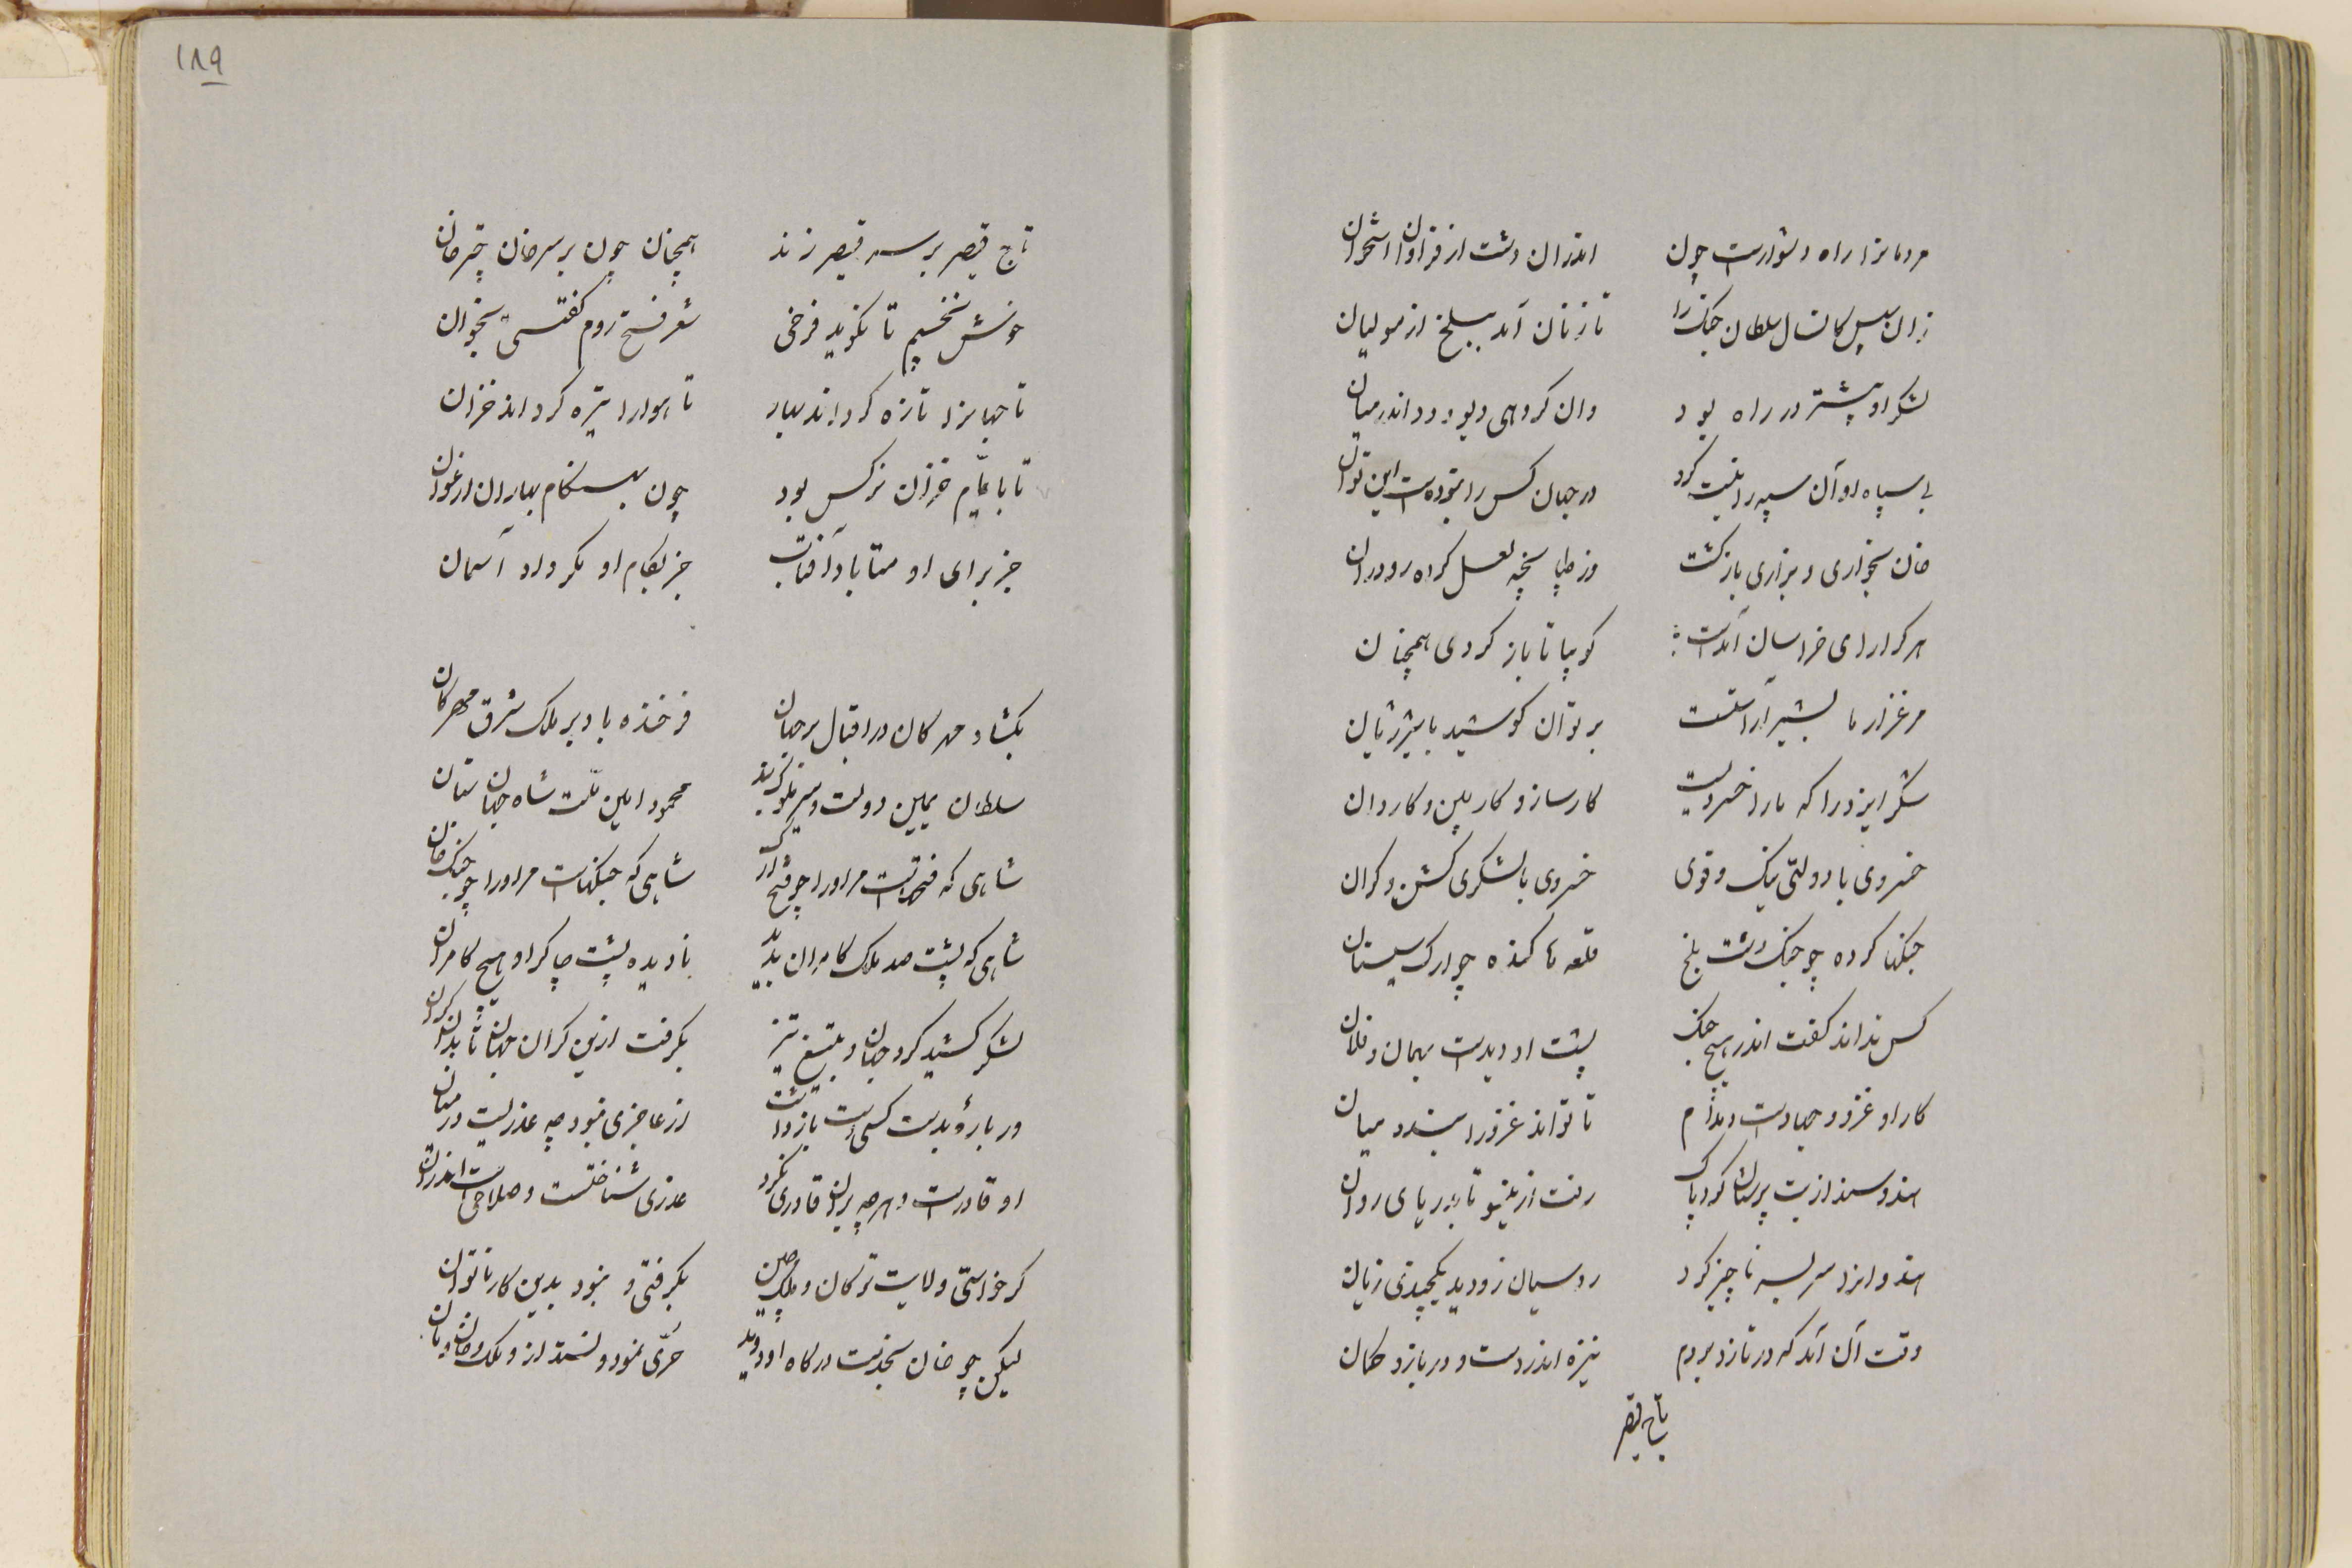 مردمانرا راه دشوارست چون    اندران دشت از فراوان استخوان
زان سپس کانسال سلطان جنک را    تازنان آمد ببلخ از مولیان
لشکر او پیشتر در راه بود    وان کروهی دیو بود اندر میان
بی سپاه او آن سپه را نیست کرد    در جهان کس را نبودست این توان
خان بخواری و بزاری بازکشت    وز طپانچه لعل کرده رو و ران
هر کرا رای خراسان آمدست    کو بیا تا باز کردی همچنان
مرغزار ما بشیر آراستست    بر توان کوشید با شیر ژیان
شکر ایزد را که ما را خسرویست    کارساز و کاربین و کاردان
خسروی با دولتی نیک و قوی    خسروی با لشکری کشن و کران
جنکها کرده چو جنک دشت بلخ    قلعه ها کنده چو ارک سیستان
کس نداند کفت اندر هیچ جنک    پشت او دیدست بهمان و فلان
کار او غزو و جهادست و مدام    تا تواند غزو را بندد میان
هند و سند از بت پرستان کرد پاک    رفت ازینسو تا بدریای روان
هندوانرا سر بسر ناچیز کرد    روسیان زو دید یکچندی زیان
وقت آن آمد که در تازد بروم    نیزه اندر دست و در بازو کمان
تاج قیصر
۱۸۹
تاج قیصر بر سر قیصر زند    همچنان چون بر سر خان چتر خان
خوش نخسبم تا نکوید فرخی    شعر فتح روم کفتستی بخوان
تا جهانرا تازه کرداند بهار    تا هوا را تیره کرداند خزان
تا بایام خزان نرکس بود    چون بهنکام بهاران ارغوان
جز برای او متابا دآفتاب    جز بکام او مکرداد آسمان
بکشاد مهرکان در اقبال بر جهان    فرخنده باد بر ملک شرق مهرکان
سلطان یمین دولت و میر ملوک بند    محمود امین ملت شاه جهان ستان
شاهی که فتحهاست مر او را چو فتح ارک    شاهی که جنکهاست مر او را چو جنک خان
شاهی که پشت صد ملک کامران بدید    نادیده پشت چاکر او هیچ کامران
لشکر کشید کرد جهان و بتیغ تیز    بکرفت ازین کران جهان تا بدان کران
ور بارۀ بدست کسی باز داشتست    از عاجزی نبود چه عذریست در میان
او قادرست و هر چه بدان قادری نکرد    عذری شناختست و صلاحیست اندران
کر خواستی ولایت ترکان و ملک چین    بکرفتی و نبود بدین کار ناتوان
لیکن چو خان بخدمت درکاه او دوید    حری نمود و نستد ازو ملک و خان و مان